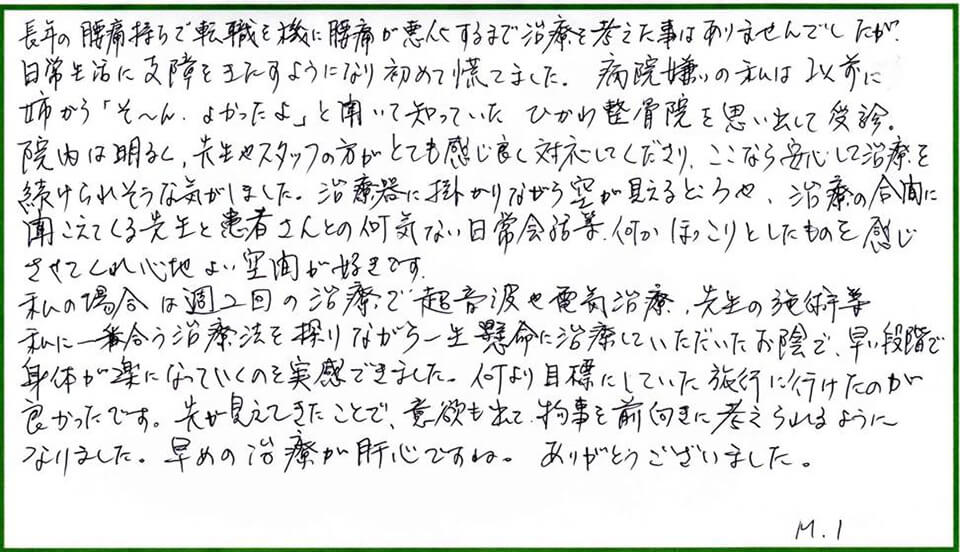 長年の腰痛持ちで転職を機に腰痛が悪化するまで治療を考えた事はありませんでしたが、
日常生活に支障をきたすようになり初めて慌てました。病院嫌いの私は以前に
姉から「そ〜ん、よかったよ」と聞いて知っていた ひかわ整骨院を思い出して受診。
院内は明るく、先生やスタッフの方がとても感じ良く対応してくださり、ここなら安心して治療を
続けられそうな気がしました。治療器に掛かりながら空が見えるところや、治療の合間に
聞こえてくる先生と患者さんとの何気ない日常会話等、何かほっこりとしたものを感じ
させてくれ心地よい空間が好きです。
私の場合は週2回の治療で超音波や電気治療、先生の施術等
私に一番合う治療法を探りながら一生懸命に治療していただいたお陰で、早い段階で
身体が楽になっていくのを実感できました。何より目標にしていた旅行に行けたのが
良かったです。先が見えてきたことで、意欲も出て、物事を前向きに考えられるように
なりました。早めの治療が肝心ですね。ありがとうございました。
M.I